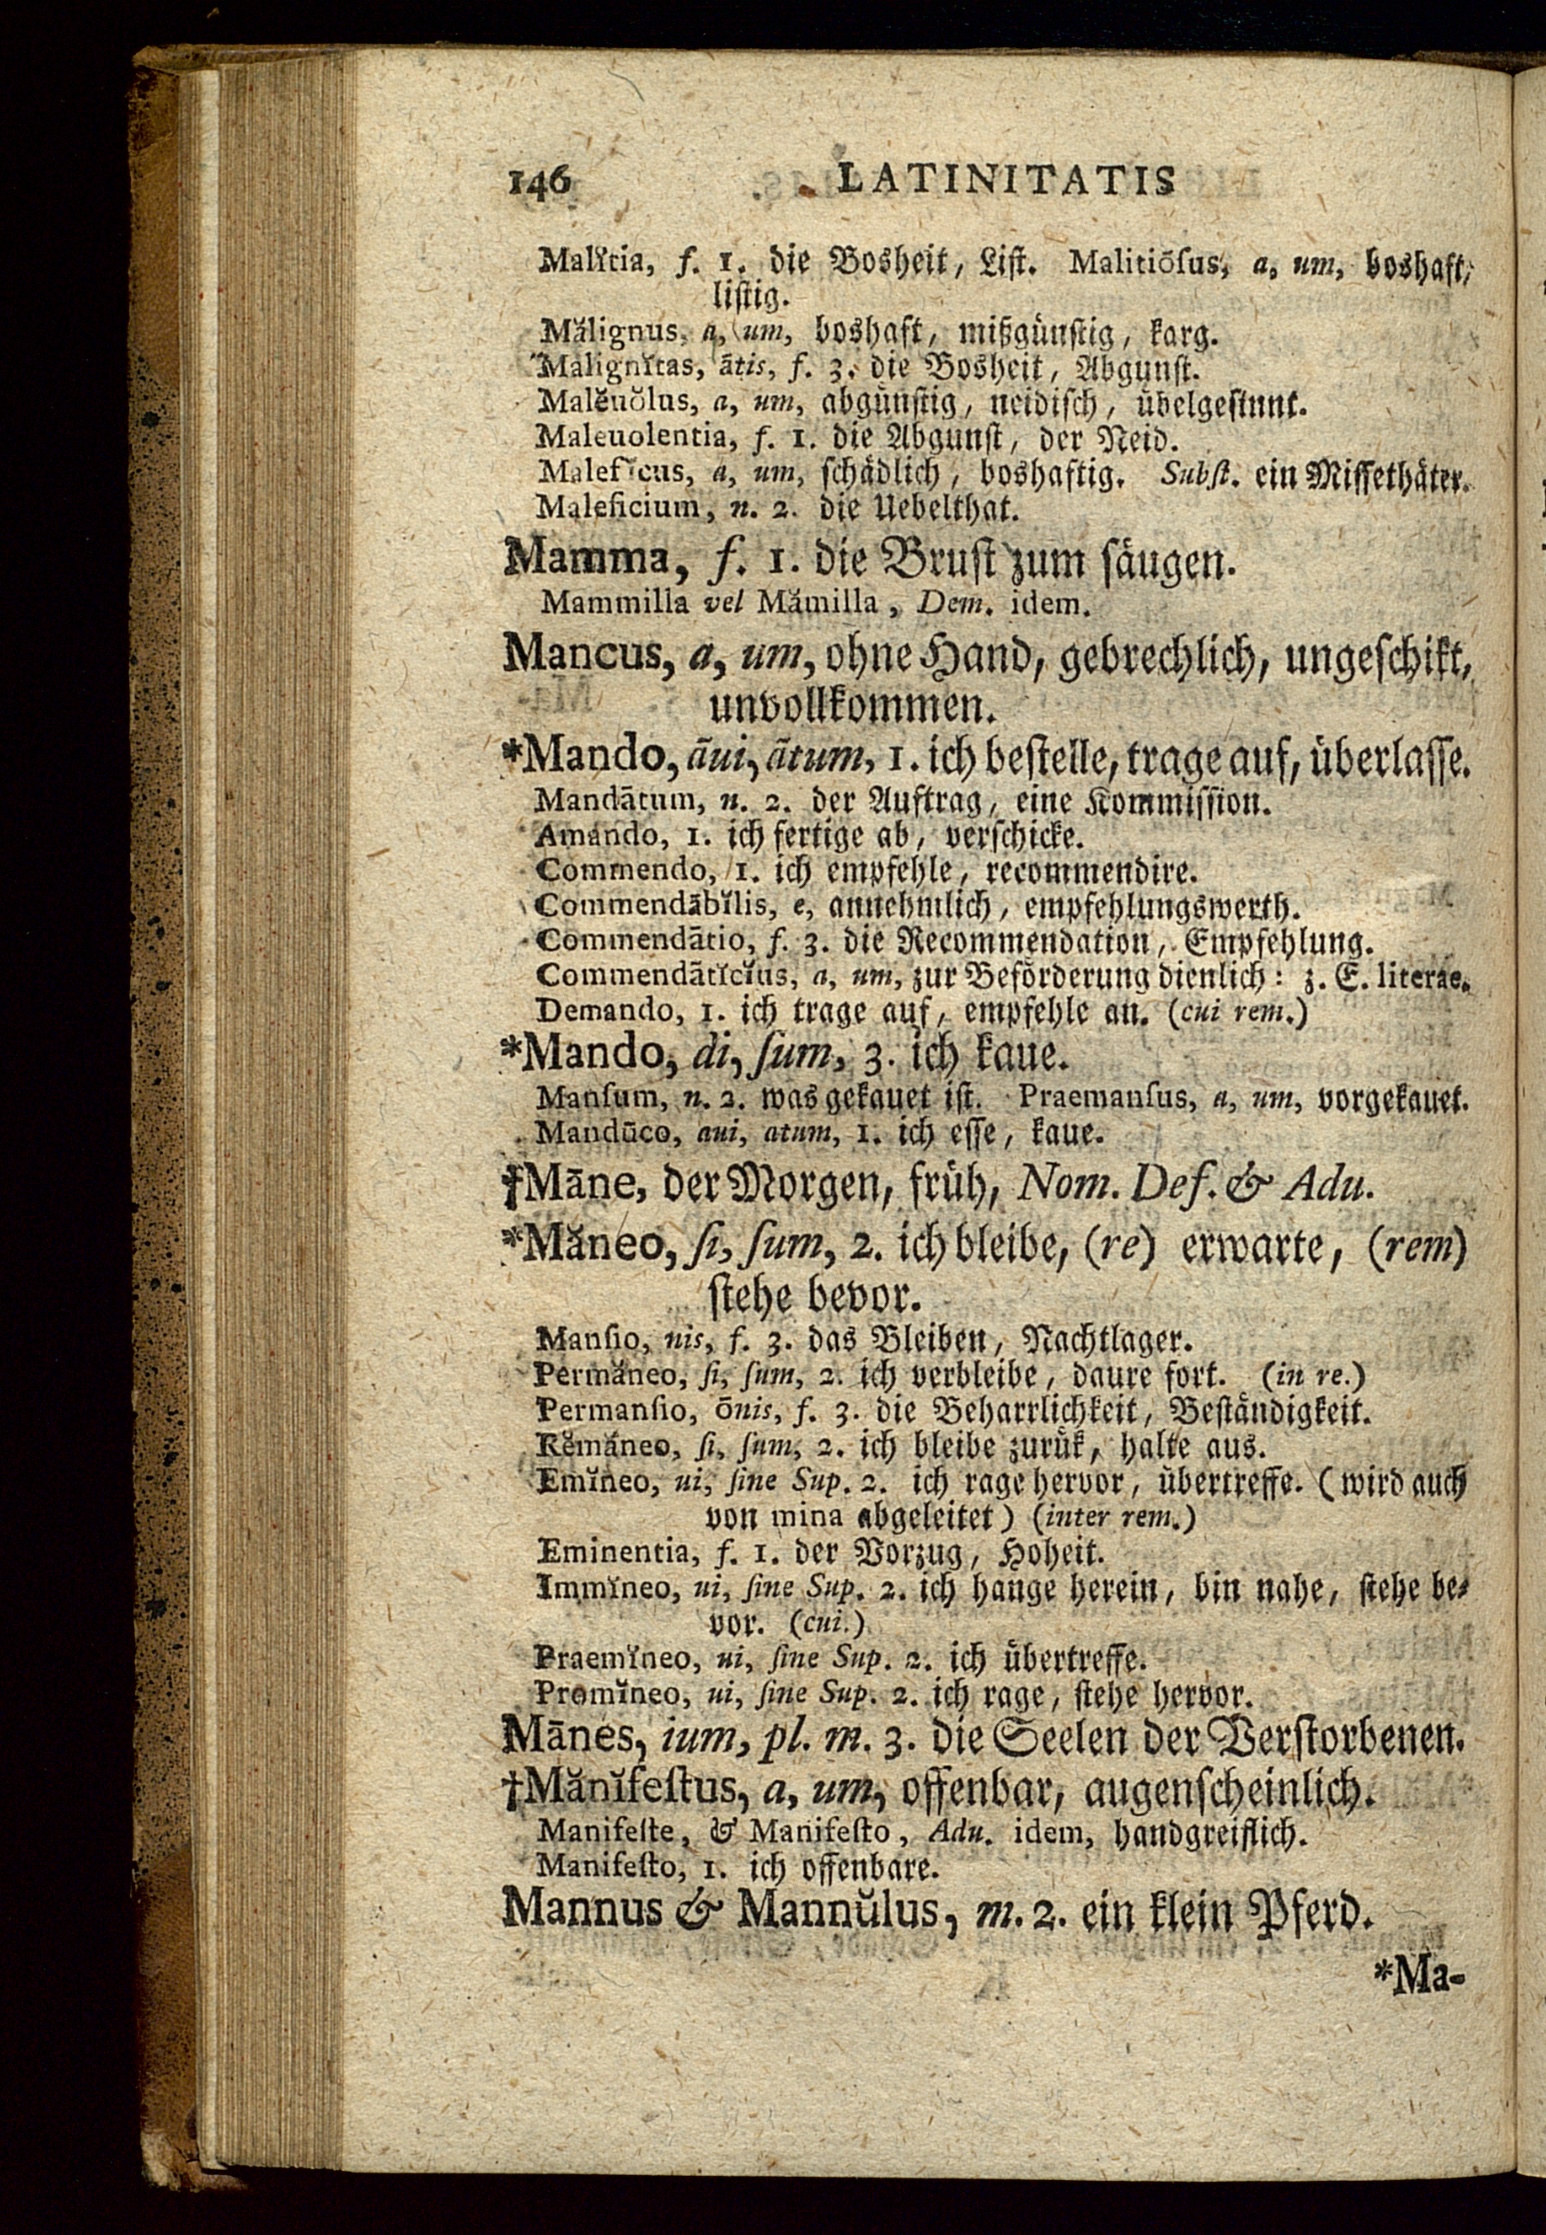 146 LATINITATIS
Malĭtia, f. 1. die Bosheit, List. Malitiōſus, a, um, boshaft,
listig.
Mălignus, a, um, boshaft, mißgünstig, karg.
Malignĭtas, ātis, f. 3. die Bosheit, Abgunst.
Malĕuŏlus, a, um, abgünstig, neidisch, übelgesinnt.
Maleuolentia, f. 1. die Abgunst, der Neid.
Malefĭcus, a, um, schädlich, boshaftig. Subſt. ein Missethäter.
Maleficium, n. 2. die Uebelthat.
Mamma, f. 1. die Brust zum säugen.
Mammilla vel Mămilla, Dem. idem.
Mancus, a, um, ohne Hand, gebrechlich, ungeschikt,
unvollkommen.
*Mando, āui, ātum, 1. ich bestelle, trage auf, überlasse.
Mandātum, n. 2. der Auftrag, eine Kommission.
Amando, 1. ich fertige ab, verschicke.
Commendo, 1. ich empfehle, recommendire.
Commendābĭlis, e, annehmlich, empfehlungswerth.
Commendātio, f. 3. die Recommendation, Empfehlung.
Commendātĭcĭus, a, um, zur Beförderung dienlich: z. E. literae.
Demando, 1. ich trage auf, empfehle an. (cui rem.)
*Mando, di, ſum, 3. ich kaue.
Manſum, n. 2. was gekauet ist. Praemanſus, a, um, vorgekauet.
Mandūco, aui, atum, 1. ich esse, kaue.
†Māne, der Morgen, früh, Nom. Def. & Adu.
*Măneo, ſi, ſum, 2. ich bleibe, (re) erwarte, (rem)
stehe bevor.
Manſio, nis, f. 3. das Bleiben, Nachtlager.
Permăneo, ſi, ſum, 2. ich verbleibe, daure fort. (in re.)
Permanſio, ōnis, f. 3. die Beharrlichkeit, Beständigkeit.
Rĕmăneo, ſi, ſum, 2. ich bleibe zurük, halte aus.
Emĭneo, ui, ſine Sup. 2. ich rage hervor, übertreffe. (wird auch
von mina abgeleitet) (inter rem.)
Eminentia, f. 1. der Vorzug, Hoheit.
Immĭneo, ui, ſine Sup. 2. ich hange herein, bin nahe, stehe be-
vor. (cui.)
Praemĭneo, ui, ſine Sup. 2. ich übertreffe.
Promĭneo, ui, ſine Sup. 2. ich rage, stehe hervor.
Mānes, ium, pl. m. 3. die Seelen der Verstorbenen.
†Mănĭfeſtus, a, um, offenbar, augenscheinlich.
Manifeſte, & Manifeſto, Adu. idem, handgreiflich.
Manifeſto, 1. ich offenbare.
Mannus & Mannŭlus, m. 2. ein klein Pferd.
*Ma-